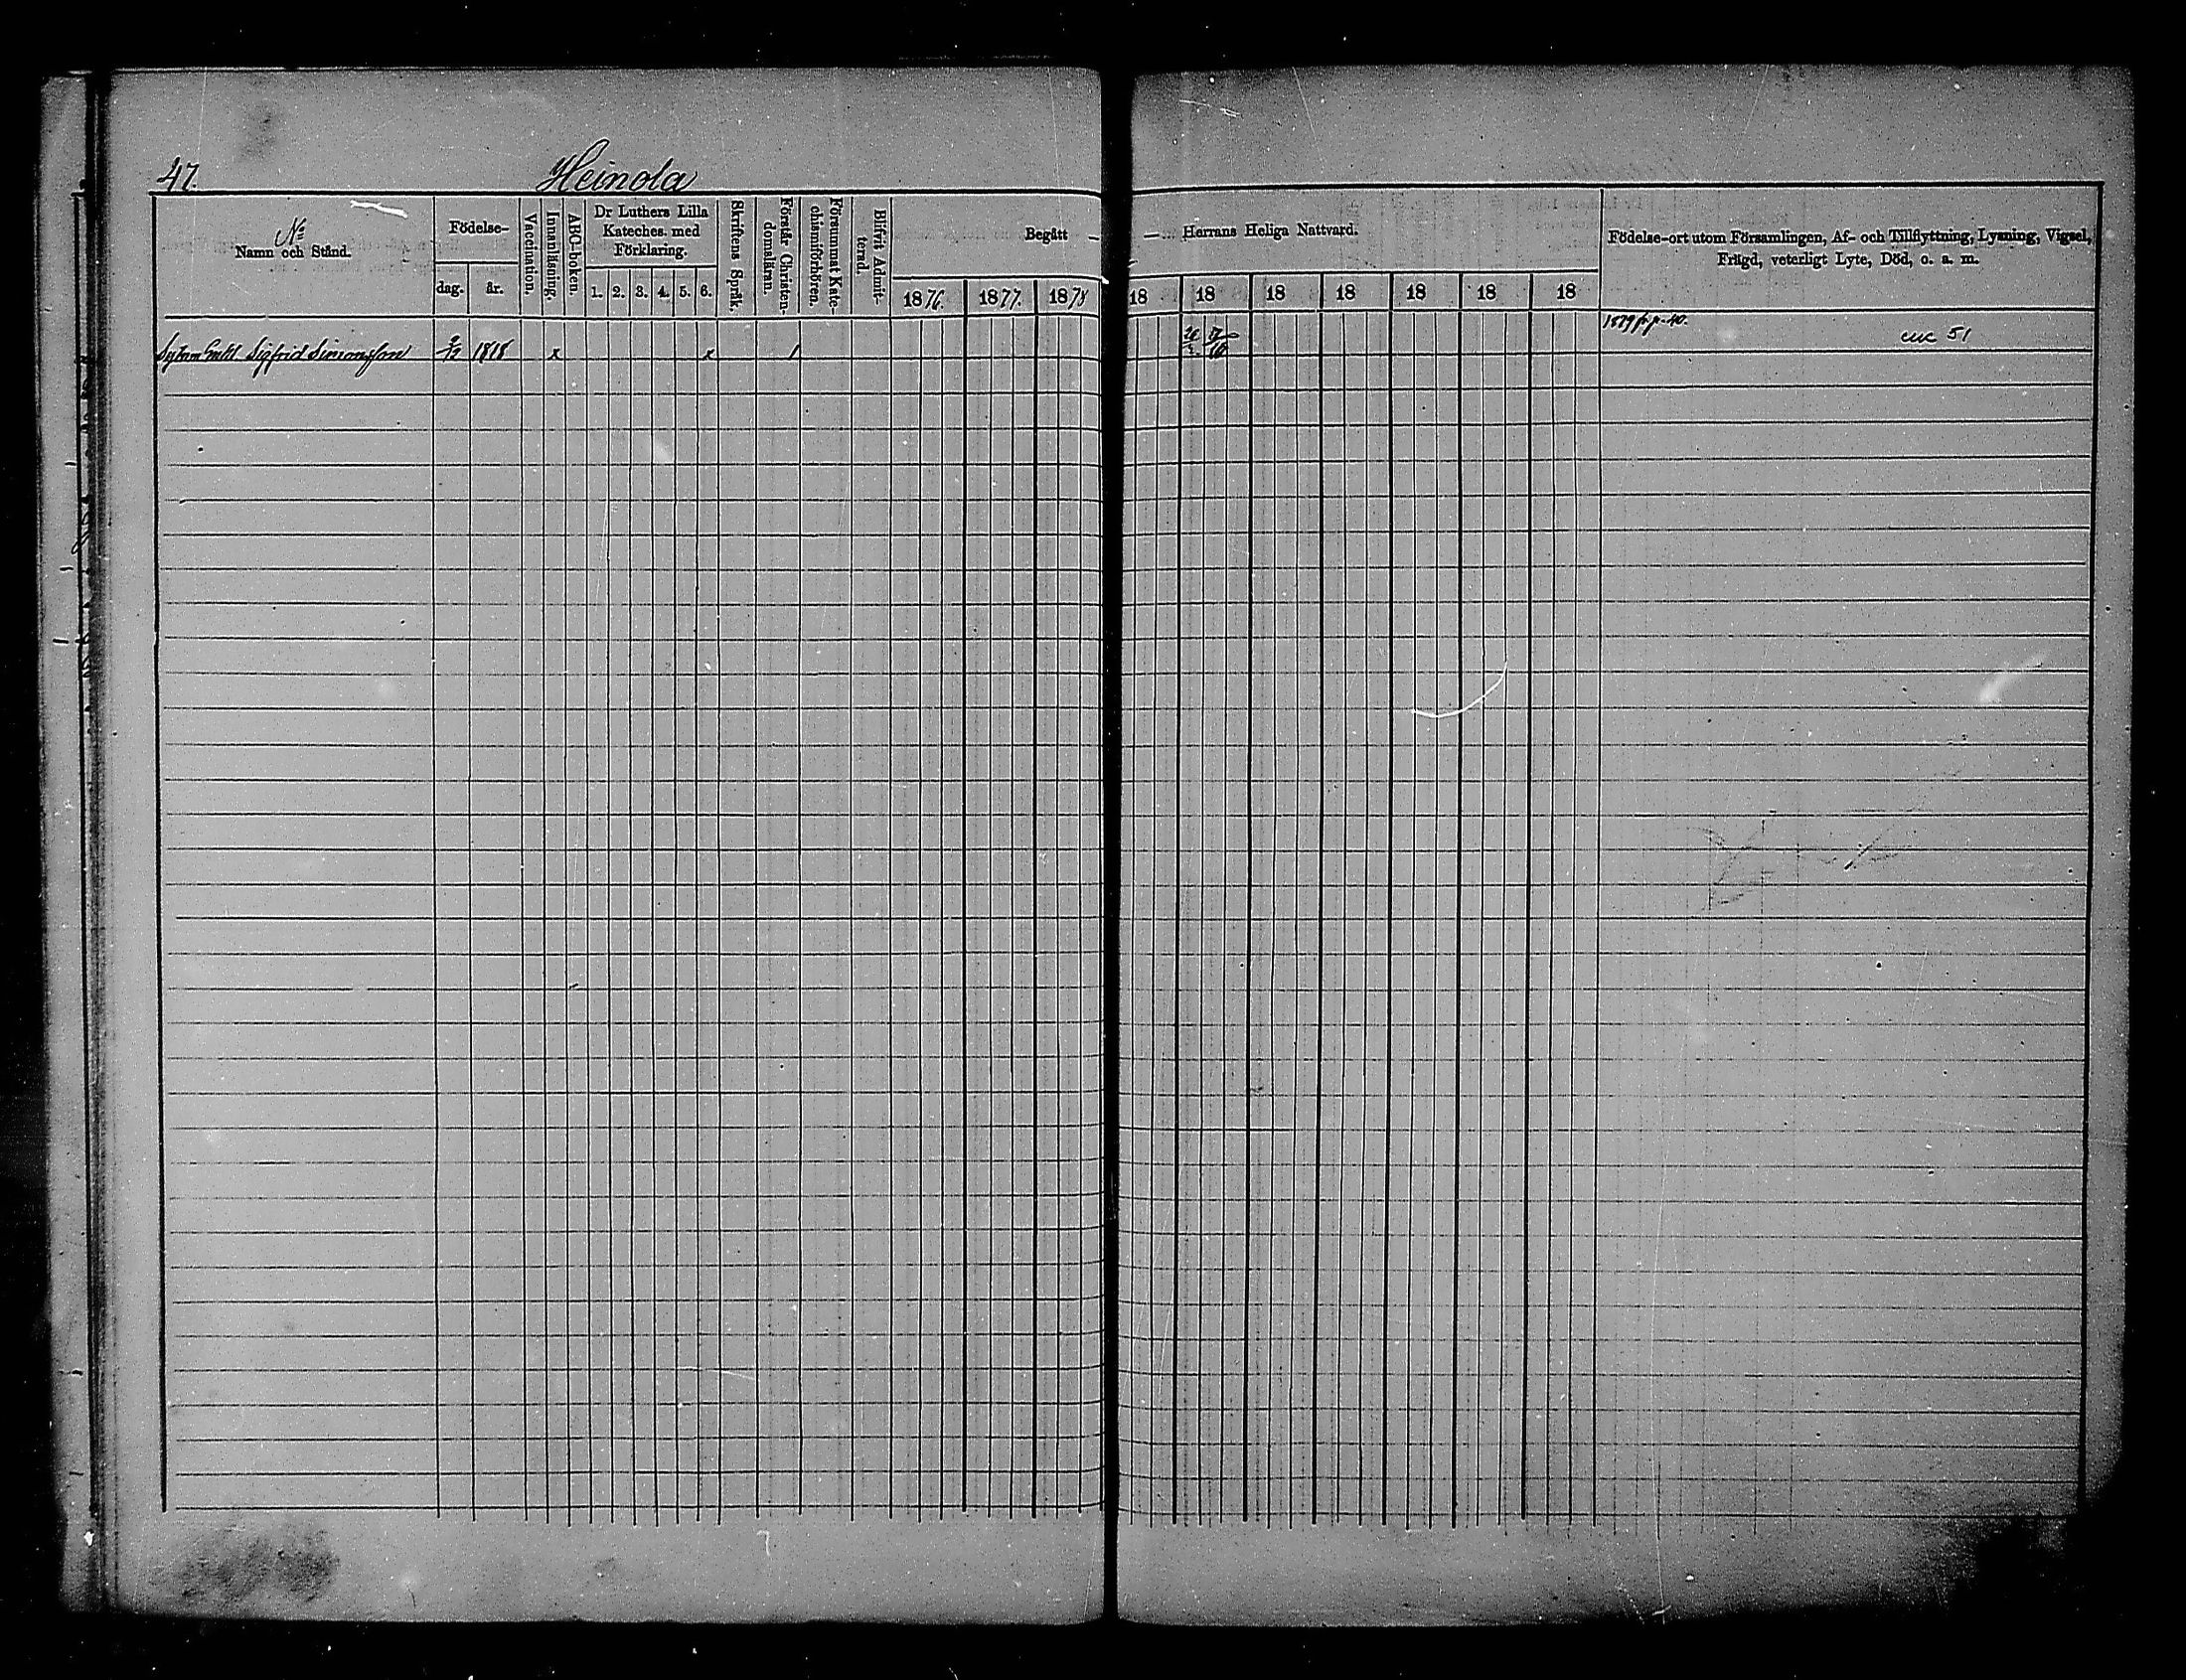 47.
Heinola
№
Namn och Stånd.
Födelse-
dag.
år.
Vaccination.
Innanläsning.
ABC-boken.
Dr Luthers Lilla
Kateches. med
Förklaring.
1. 2. 3. 4. 5. 6.
Skriftens Språk.
Förstår Christen-
domsläran.
Försummat Kate-
chismiförhören.
Blifvit Admit-
terad.
Begått —
1876. 1877. 1878
— Herrans Heliga Nattvard.
18 18 18 18 18 18 18
Födelse-ort utom Församlingen, Af- och Tillflyttning, Lysning, Vigsel,
Frägd, veterligt Lyte, Död, o. a. m.
Sigfrid Simonsson 2/12 1818 x x 1
1879 fr. p. 40.
51